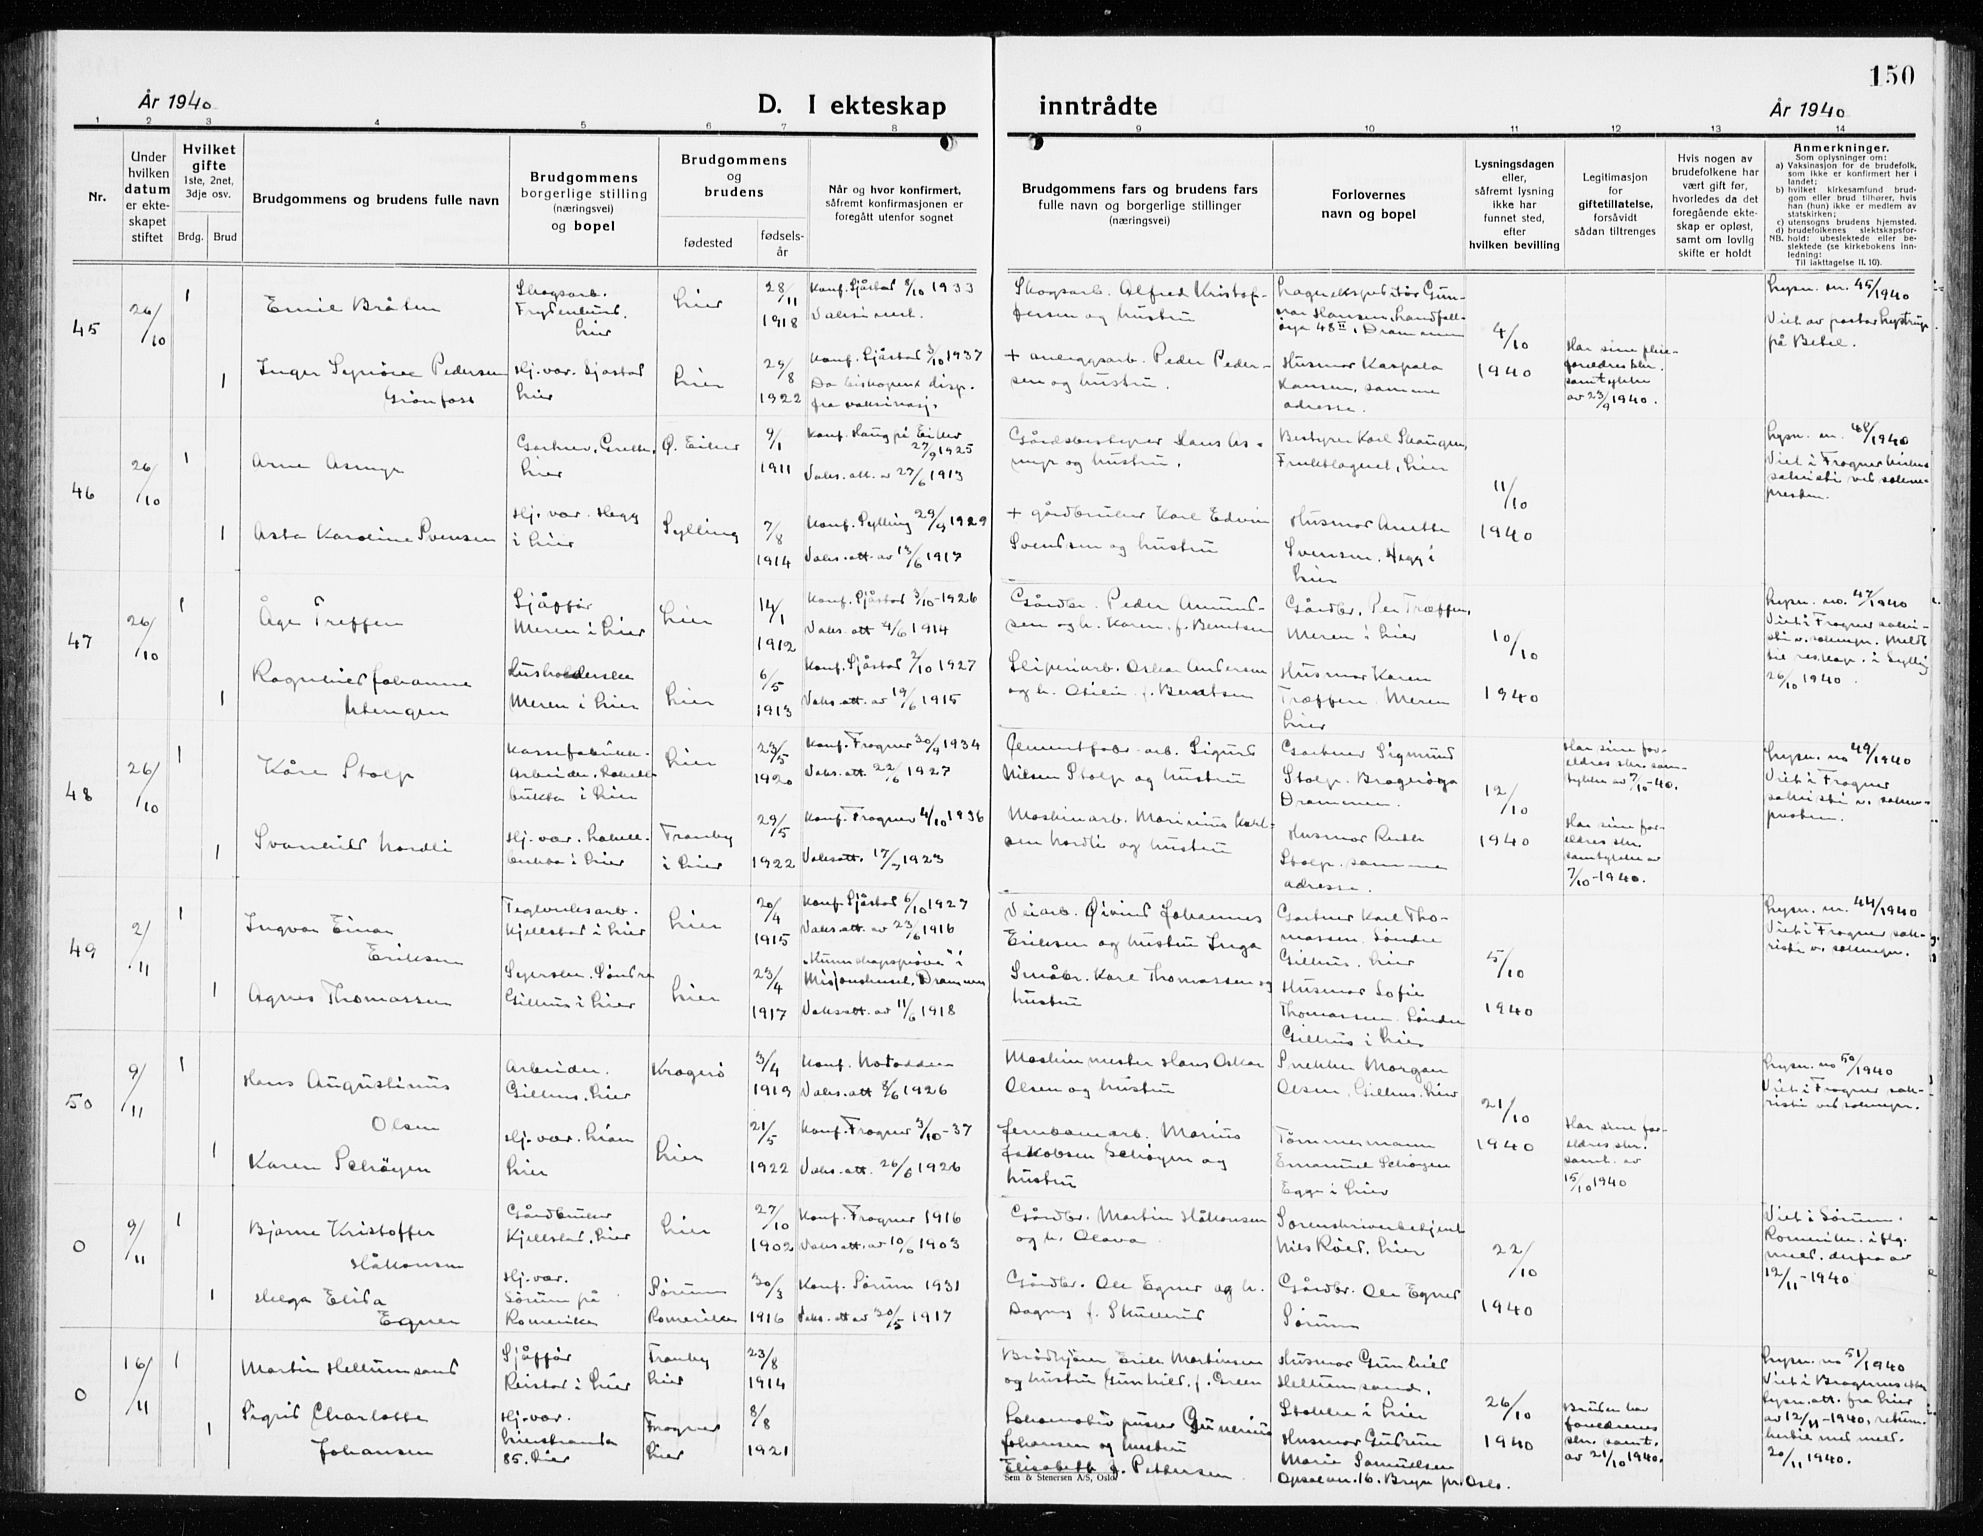 150
År 1940
D. I ekteskap
inntrådte
År 1940
1 2 3 4 5 6 7 8 9 10 11 12 13 14
Nr.
Under
hvilken
datum
er ekte-
skapet
stiftet
Hvilket
gifte
1ste, 2net,
3dje osv.
Brdg. Brud
Brudgommens og brudens fulle navn
Brudgommens
borgerlige stilling
(næringsvei)
og bopel
Brudgommens
og
brudens
fødested
fødsels-
år
Når og hvor konfirmert,
såfremt konfirmasjonen er
foregått utenfor sognet
Brudgommens fars og brudens fars
fulle navn og borgerlige stillinger
(næringsvei)
Forlovernes
navn og bopel
Lysningsdagen
eller,
såfremt lysning
ikke har
funnet sted,
efter
hvilken bevilling
Legitimasjon
for
giftetillatelse,
forsåvidt
sådan tiltrenges
Hvis nogen av
brudefolkene har
vært gift før,
hvorledes da det
foregående ekte-
skap er opløst,
samt om lovlig
skifte er holdt
Anmerkninger.
Som oplysninger om:
a) Vaksinasjon for de brudefolk,
som ikke er konfirmert her i
landet;
b) hvilket kirkesamfund brud-
gom eller brud tilhører, hvis
han (hun) ikke er medlem av
statskirken;
c) utensogns brudens hjemsted.
d) brudefolkenes slektskapsfor-
NB. hold: ubeslektede eller be-
slektede (se kirkebokens inn-
ledning:
Til iakttagelse II. 10).
45
26/10
1
Emil Bråten
Skogsarb.
Frydenlund.
Lier
Lier
28/11
1918
Konf. Sjåstad 8/10 1933
Skogsarb. Alfred Kristof-
fersen og hustru
Lagerekspeditør Gun-
nar Hansen, Landfall-
øya 48 II, Drammen
4/10
1940
Lysn. nr. 45/1940
Viet av pastor Lystrup
på Betel.
1
Inger Synnøve Pedersen
Grønfoss
Hj. vær. Sjåstad
Lier
Lier
29/8
1922
Konf. Sjåstad 3/10 1937
Da biskopens disp.
fra vaksinasj.
+ anleggsarb. Peder Peder-
sen og hustru.
Husmor Kaspara
Hansen, samme
adresse.
Har sine pleie-
foreldres skr.
samtykke
av 23/9 1940.
46
26/10
1
Arne Asmyr
Gartner, Grette,
Lier
Ø. Eiker
9/1
1911
Konf. Haug på Eiker
27/9 1925
Vaks. att. av 27/6 1913
Gårdsbestyrer Hans As-
myr og hustru.
Bestyrer Karl Skaugen,
Fruktlageret, Lier
11/10
1940
Lysn. nr. 48/1940
Viet i Frogner kirkes
sakristi ved sokne-
presten.
1
Asta Karoline Svensen
Hj. vær. Hegg
i Lier
Sylling
7/8
1914
Konf. Sylling 29/9 1929
Vaks. att. av 13/6 1917
+ gårdbruker Karl Edvin
Svendsen og hustru
Husmor Anette
Svensen. Hegg i
Lier
47
26/10
1
Åge Treffen
Sjåffør
Meren i Lier
Lier
14/1
1912
Konf. Sjåstad 3/10-1926
Vaks. att 4/6 1914
Gårdbr. Peder Amund-
sen og h. Karen f. Berntsen
Gårdbr. Per Træffen,
Meren i Lier
10/10
1940
Lysn. no. 47/1940
Viet i Frogner sakri-
sti v. soknepr. Meldt
til reskap. i Sylling
26/10 1940.
1
Ragnhild Johanne
Utengen
Husholderske
Meren i Lier
Lier
6/5
1913
Konf. Sjåstad 2/10 1927
Vaks. att. av 19/6 1915
Sliperiarb. Oskar Andersen
og h. Otilie f. Berntsen
Husmor Karen
Træffen. Meren
Lier
48
26/10
1
Kåre Stolp
Kassefabrikk-
Arbeider.
i Lier
Lier
23/5
1920
Konf. Frogner 30/9 1934
Vaks. att. 22/6 1927
Cementfabr. arb. Sigurd
Nilsen Stolp og hustru
Gartner Sigmund
Stolp. Bragerøya
Drammen.
12/10
1940
Har sine for-
eldres skr. sam-
tykke av 7/10-40.
Lysn. no 49/1940
Viet i Frogner
sakristi v. sokne-
presten.
1
Svanhild Nordli
Hj. vær.
i Lier
Tranby
i Lier
29/5
1922
Konf. Frogner 4/10 1936
Vaks. att. 1923
Maskinarb. Marinius Karl-
sen Nordli og hustru
Husmor Ruth
Stolp. samme
adresse.
Har sine for-
eldres skr.
samtykke av
7/10-1940.
49
2/11
1
Ingvar Einar
Eriksen
Teglverksarb.
Kjellstad i Lier
Lier
20/4
1915
Konf. Sjåstad 6/10 1927
Vaks. att. av 23/6 1916
Veiarb. Øivind Johannes
Eriksen og hustru Inga
Gartner Karl Tho-
massen. Søndre
Gilhus. Lier
5/10
1940
Lysn. nr. 44/1940
Viet i Frogner sak-
risti v. soknepr.
1
Agnes Thomassen
Syerske. Søndre
Gilhus i Lier
Lier
23/4
1917
"Kunnskapsprøve" i
Misjonshuset, Drammen
Vaks. att. av 11/6 1918
Småbr. Karl Thomassen og
hustru
Husmor Sofie
Thomassen. Søndre
Gilhus i Lier
50
9/11
1
Hans Augustinus
Olsen
Arbeider.
Gilhus. Lier
Kragerø
3/4
1919
Konf. Notodden
Vaks. att 8/6 1926
Maskinmester Hans Oskar
Olsen og hustru
Snekker Morgan
Olsen, Gilhus. Lier
21/10
1940
Lysn. no 50/1940
Viet i Frogner sak-
risti ved soknepr.
1
Karen Schøyen
Hj. vær. Lian
Lier
Lier
21/5
1922
Konf. Frogner 3/10-37
Vaks. att. 26/6 1926
Jernbanearb. Marius
Jakobsen Schøyen og
hustru
Tømmermann
Emanuel Schøyen
Egge i Lier
Har sine for-
eldres skr.
samt. av
15/10 1940
0
9/11
1
Bjarne Kristoffer
Håkonsen
Gårdbruker
Kjellstad. Lier
Lier
27/10
1902
Konf. Frogner 1916
Vaks. att. av 10/6 1903
Gårdbr. Martin Håkonsen
og h. Olava.
Sorenskriverbetjent
Nils Røed. Lier
22/10
1940
Viet i Sørum.
Romerike. iflg.
meld. derfra av
12/11-1940
1
Helga Elida
Egner
Hj. vær.
Sørum på
Romerike
Sørum
Romerike
30/3
1916
Konf. Sørum 1931
Vaks. att av 30/5 1917
Gårdbr. Ole Egner og h.
Dagny f. Skullerud
Gårdbr. Ole Egner
Sørum
0
16/11
1
Martin Hellumsand
Sjåffør
Reistad i Lier
Tranby
Lier
23/8
1914
Brødkjører Erik Martinsen
og hustru Gunhild, f. Green
Husmor Gunhild
Hellumsand.
Stokke i Lier
26/10
1940
Lysn. no 51/1940
Viet i Bragernes etter
lysn. att. fra Lier
av 12/11-1940, return.
hertil med meld.
20/11 1940.
1
Sigrid Charlotte
Johansen
Hj. vær.
Lierstranda
85. Lier
Frogner
Lier
8/8
1921
Lokomotivpusser Gunerius
Johansen og hustru
Elisabeth f. Pettersen
Husmor Gudrun
Marie Samuelsen
Opsalvn. 16. Bryn pr. Oslo.
Bruden har
foreldrenes
skr. samt.
av 21/10 1940.
Sem & Stenersen A/S, Oslo